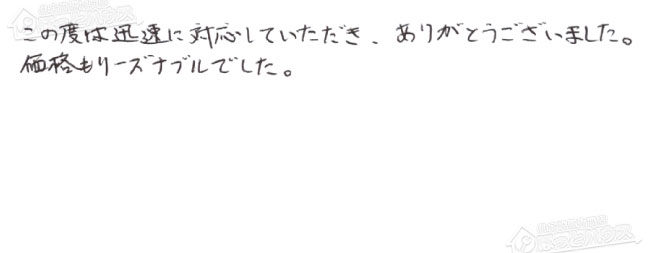 この度は迅速に対応していただき、ありがとうございました。
価格もリーズナブルでした。